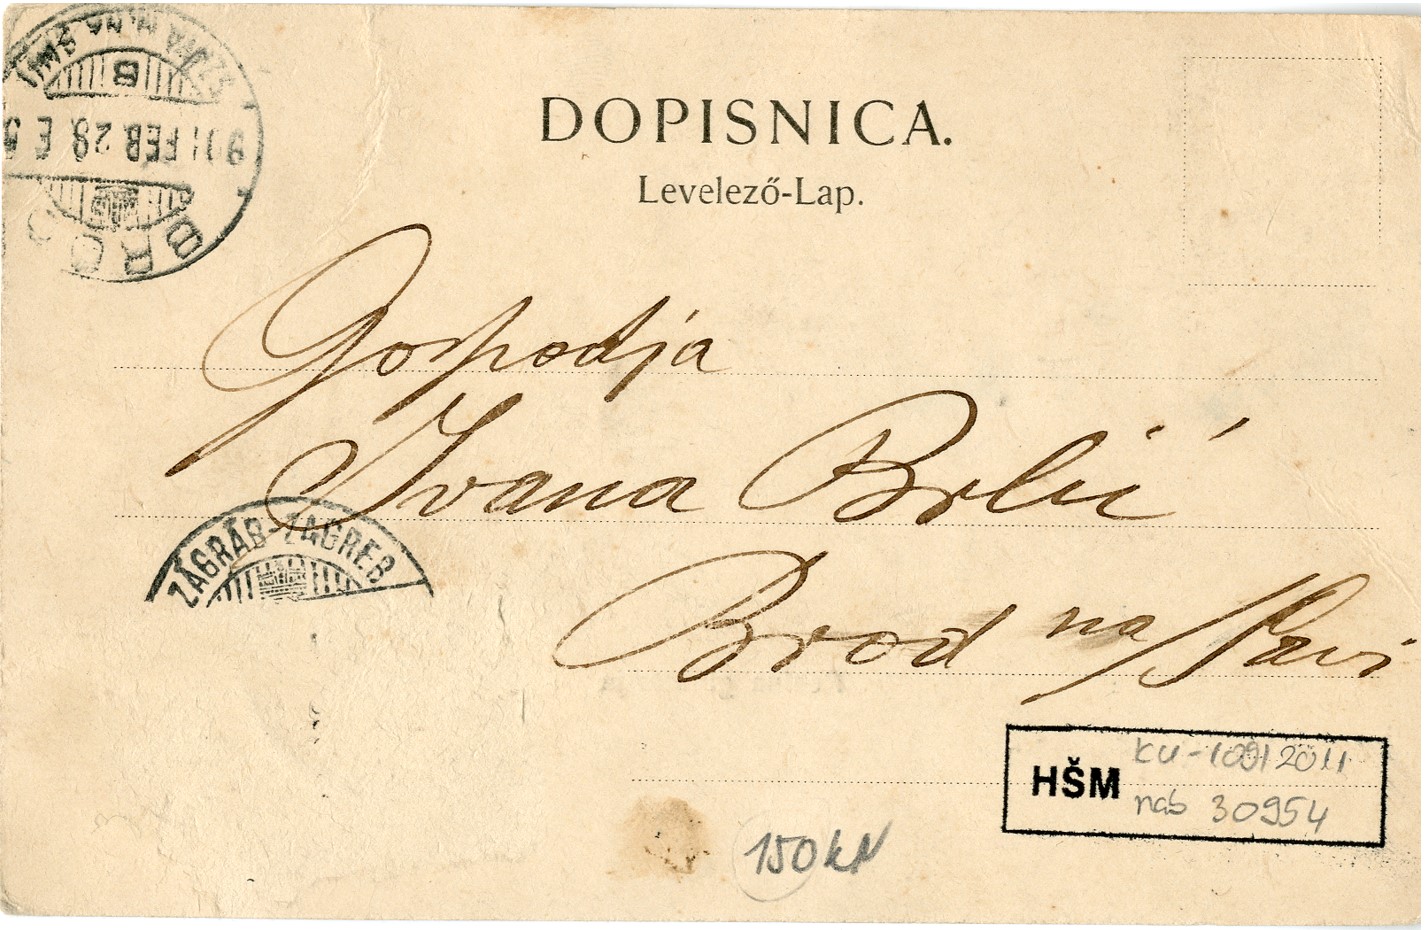 DOPISNICA.
Levelező-Lap.
901 FEB 28 E 5
Gospodja
Ivana Brlić
ZÁGRÁB-ZAGREB
Brod na/Savi
HŠM
KU-1091 2011
nab 30954
150 kn